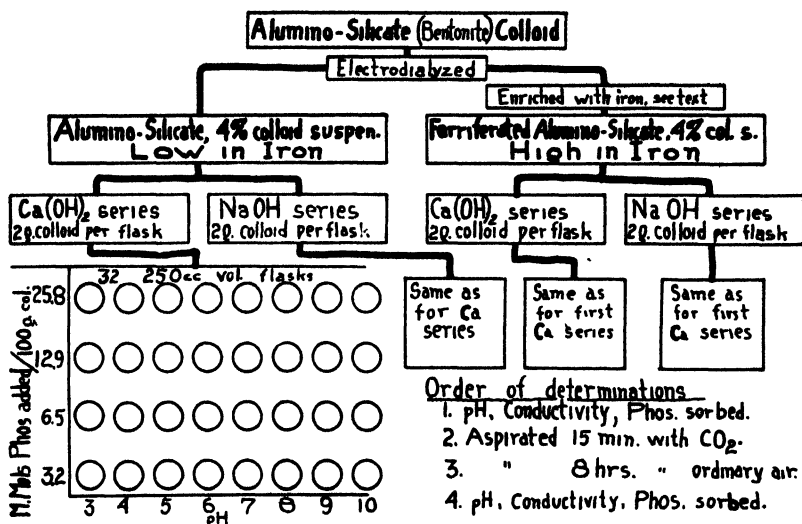 Alumino-Silicate (Bentonite) Colloid
Electrodialyzed
Enriched with iron, see text
Alumino-Silicate, 4% colloid suspen.
Low in Iron
Ferriferated Alumino-Silicate, 4% col. s.
High in Iron
Ca(OH)2 series
2g. colloid per flask
NaOH series
2g. colloid per flask
Ca(OH)2 series
2g. colloid per flask
NaOH series
2g. colloid per flask
32 250cc vol. flasks
M.Mols Phos added/100g. col.
25.8
12.9
6.5
3.2
3 4 5 6 7 8 9 10
pH
Same as
for Ca
series
Same as
for first
Ca series
Same as
for first
Ca series
Order of determinations
1. pH, Conductivity, Phos. sorbed.
2. Aspirated 15 min. with CO2.
3. " 8 hrs. " ordinary air.
4. pH, Conductivity, Phos. sorbed.